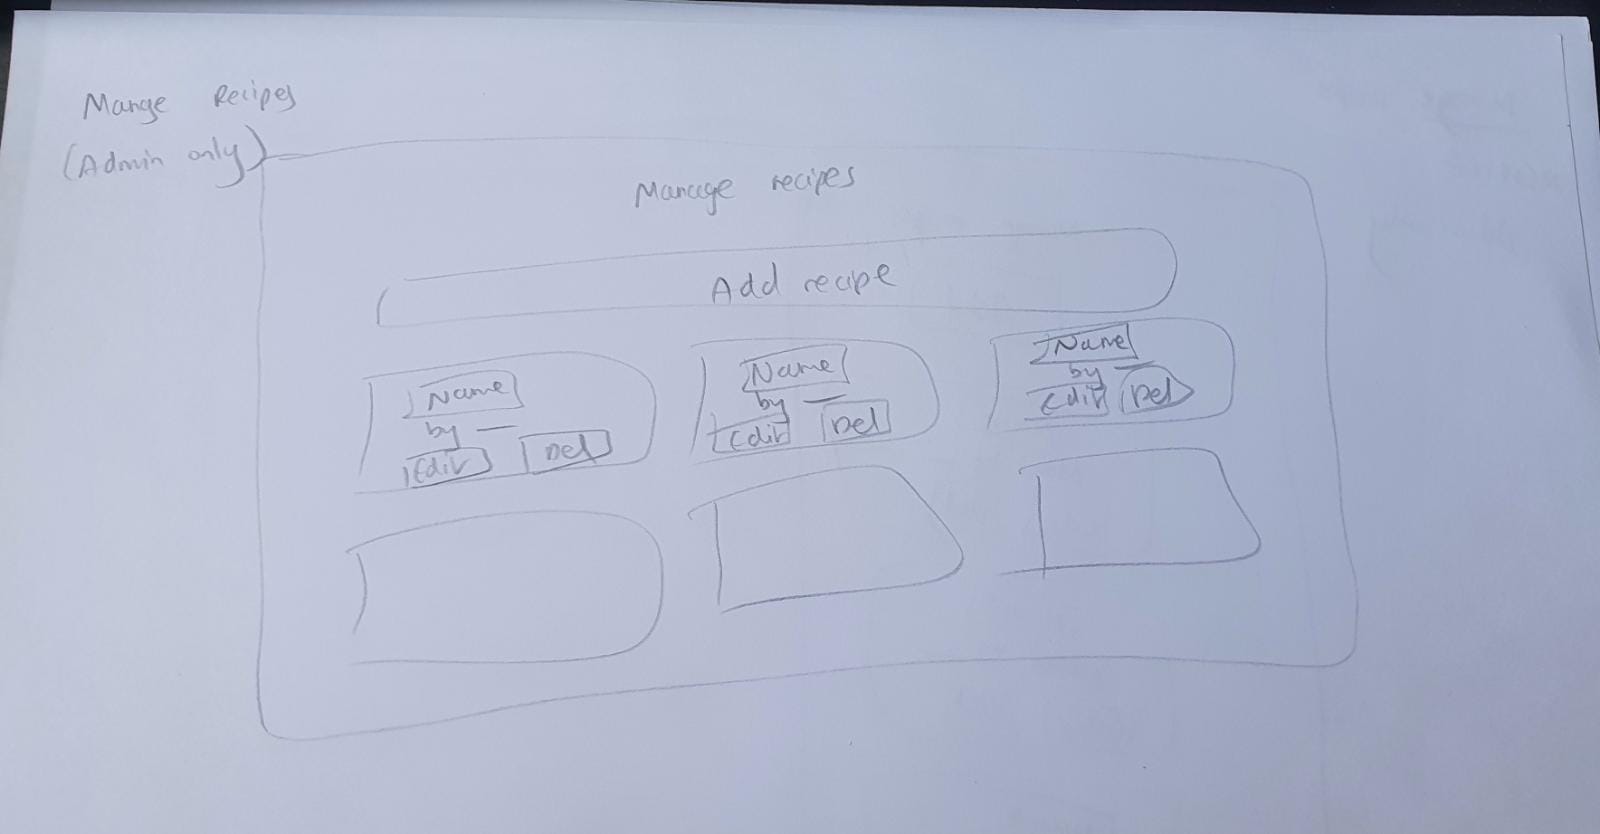 Mange Recipes
(Admin only)
Manage recipes
Add recipe
Name
by
Edit Del
Name
by
Edit Del
Name
by
Edit Del